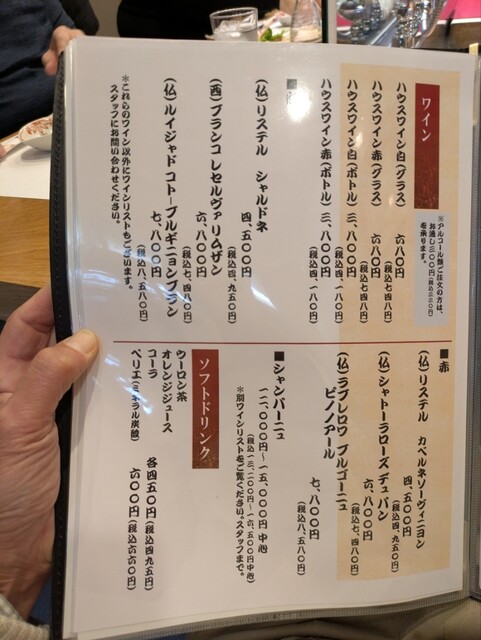 ワイン
※アルコール類ご注文の方は、
お通し三〇〇円(税込三三〇円)
を承ります。
ハウスワイン白(グラス) 六八〇円
(税込七四八円)
ハウスワイン赤(グラス) 六八〇円
(税込七四八円)
ハウスワイン白(ボトル) 三、八〇〇円
(税込四、一八〇円)
ハウスワイン赤(ボトル) 三、八〇〇円
(税込四、一八〇円)
■
(仏)リステル シャルドネ
四、五〇〇円
(税込四、九五〇円)
(西)ブランコ レセルヴァ リムザン
六、八〇〇円
(税込七、四八〇円)
(仏)ルイジャド コトーブルギニョンブラン
七、八〇〇円
(税込八、五八〇円)
※これらのワイン以外にワインリストもございます。
スタッフにお問い合わせください。
■赤
(仏)リステル カベルネソーヴィニヨン
四、五〇〇円
(税込四、九五〇円)
(仏)シャトーラローズ デュバン
六、八〇〇円
(税込七、四八〇円)
(仏)ラブレロワ ブルゴーニュ
ピノノアール
七、八〇〇円
(税込八、五八〇円)
■シャンパーニュ
一二、〇〇〇円～一五、〇〇〇円 中心
(税込一三、二〇〇円～一六、五〇〇円中心)
※別ワインリストをご覧ください。スタッフまで。
ソフトドリンク
ウーロン茶
オレンジジュース
コーラ
各四五〇円(税込四九五円)
ペリエ(ミネラル炭酸) 六〇〇円(税込六六〇円)